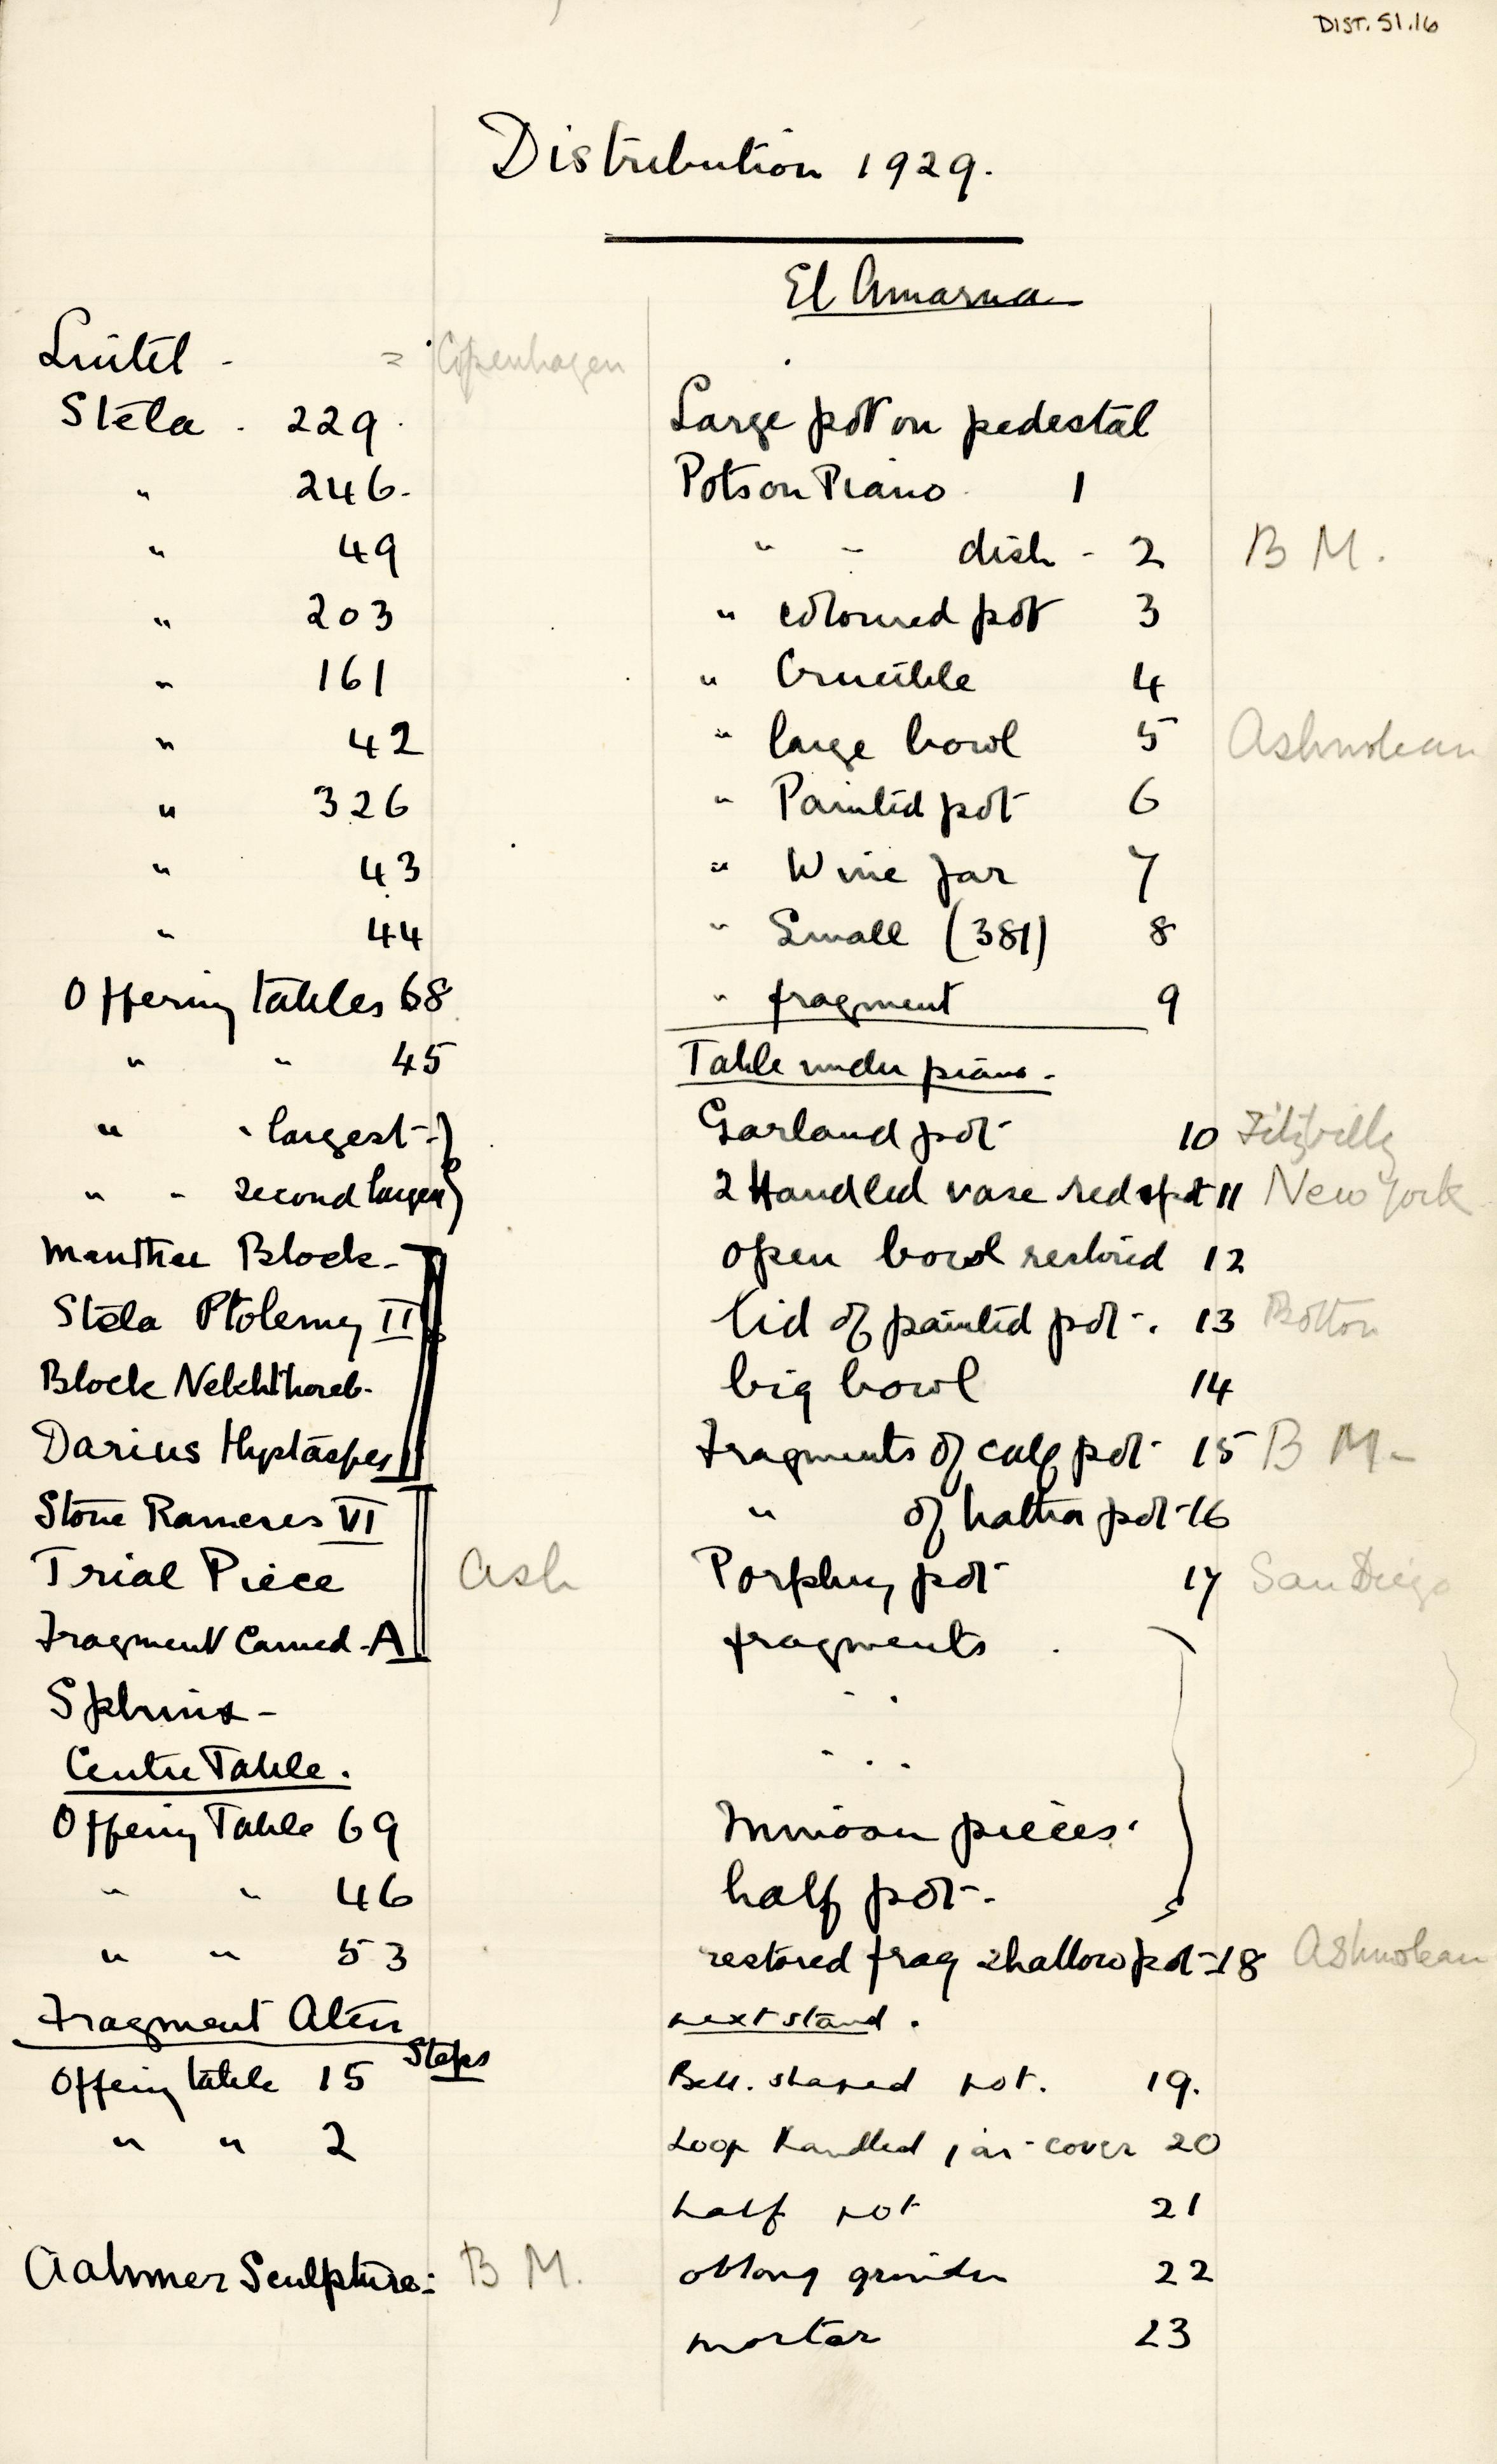 DIST. 51.16
Distribution 1929.
El Amarna
Lintel - = Copenhagen
Stela . 229.
" 246.
" 49
" 203
" 161
" 42
" 326
" 43
" 44
Offering tables 68
" " 45
" " largest -
" " second largest
Menthu Block -
Stela Ptolemy II
Block Nekhthoreb -
Darius Hystaspes
Stone Rameses VI
Trial Piece Ash
Fragment Carved - A
Sphinx -
Centre Table.
Offering Table 69
" " 46
" " 53
Fragment Aten
Steps
Offering table 15
" " 2
Aahmes Sculpture: B M.
Large pot on pedestal
Pots on Piano 1
" - dish - 2 B M.
" coloured pot 3
" Crucible 4
" large bowl 5 Ashmolean
" Painted pot 6
" Wine Jar 7
" Small (381) 8
" fragment 9
Table under piano -
Garland pot 10 Fitzwilly
2 Handled vase red 11 New York
open bowl restored 12
lid of painted pot - . 13 Bolton
big bowl 14
Fragments of calf pot - 15 B M -
" of hathor pot - 16
Porphry pot 17 San Diego
fragments .
" "
" "
Minoan pieces.
half pot -.
restored frag shallow pot - 18 Ashmolean
next stand .
Bell. shaped pot. 19.
Loop handled jar - cover 20
half pot 21
oblong grinder 22
mortar 23